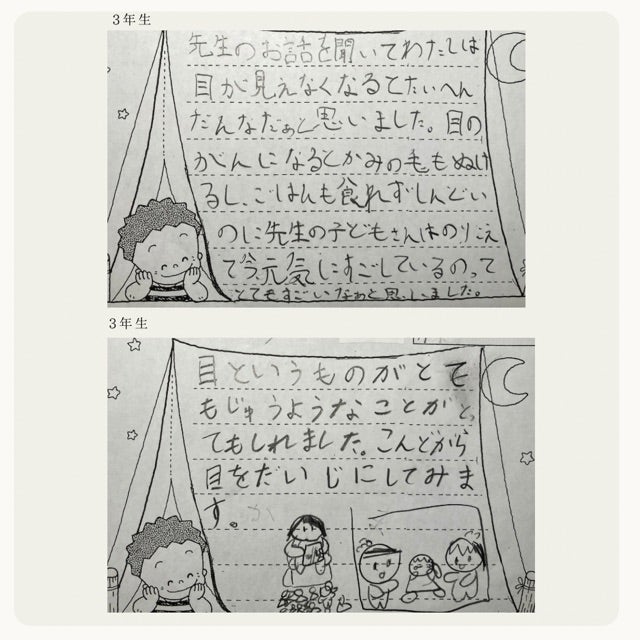 3年生
先生のお話を聞いてわたしは
目が見えなくなるとたいへん
だんなだぁと思いました。目の
がんになるとかみの毛もぬけ
るし、ごはんも食れずしんどい
のに先生の子どもさんはのりこえ
て今元気にすごしているのって
とてもすごいなぁと思いしました。
3年生
目というものがとて
もじゅうようなことがと
てもしれました。こんどから
目をだいじにしてみま
す。